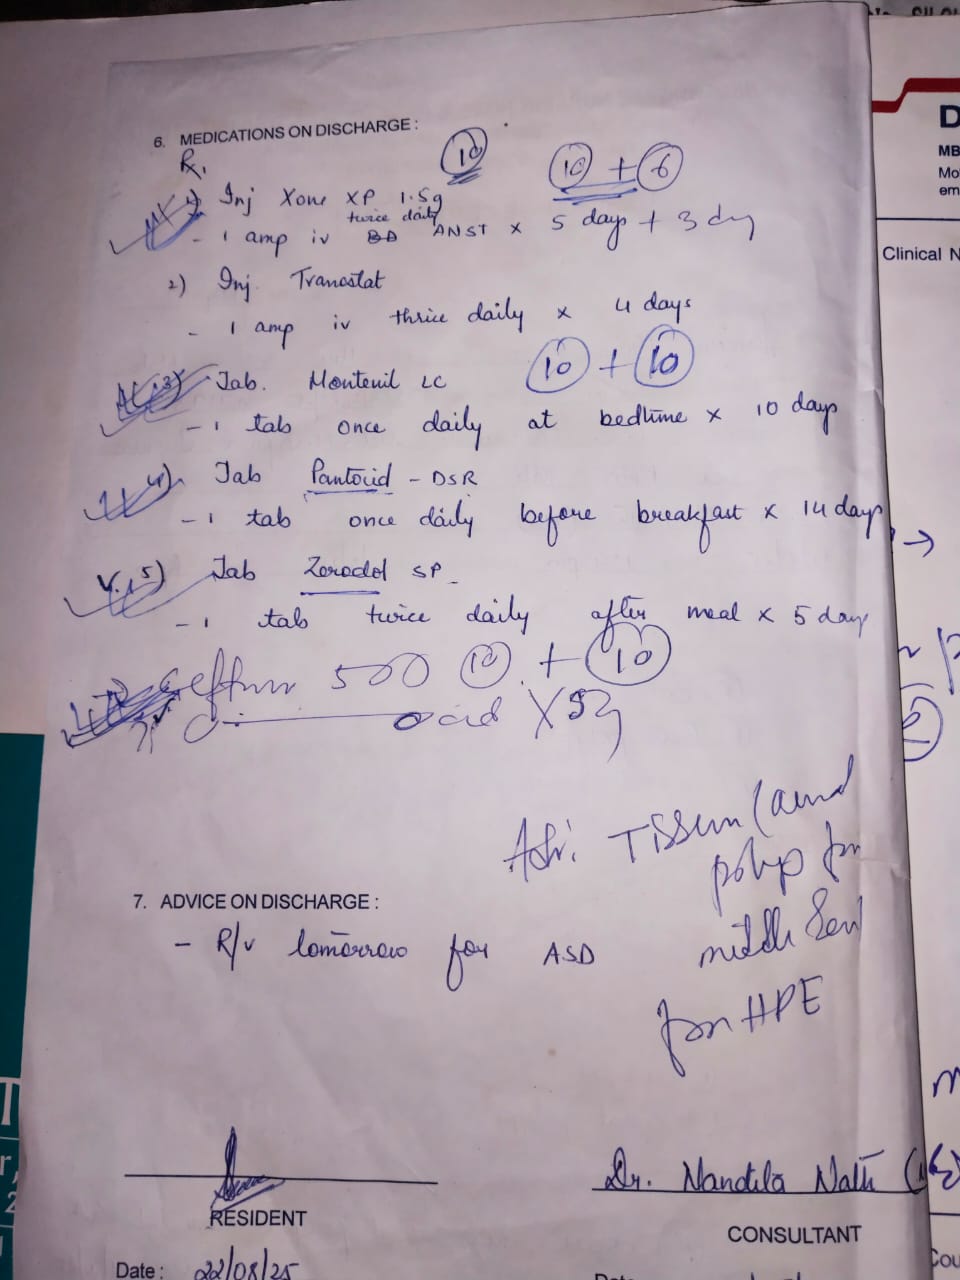 6. MEDICATIONS ON DISCHARGE :
Rx
10
10 + 6
1) Inj Xone XP 1.5g
twice daily
- 1 amp iv BD ANST x 5 days + 3 dy
2) Inj. Tranostat
- 1 amp iv thrice daily x 4 days
10 + 10
3) Tab. Montenil LC
- 1 tab once daily at bedtime x 10 days
4) Tab Pantocid - DSR
- 1 tab once daily before breakfast x 14 days
5) Tab Zerodol SP
- 1 tab twice daily after meal x 5 day
500 10 + 10
X 5
Adv. Tissue
polyp
middle
for HPE
7. ADVICE ON DISCHARGE :
- R/v tomorrow for ASD
Dr. Nandila Nath
RESIDENT
CONSULTANT
Date : 22/08/25
D
MB
Mo
em
Clinical N